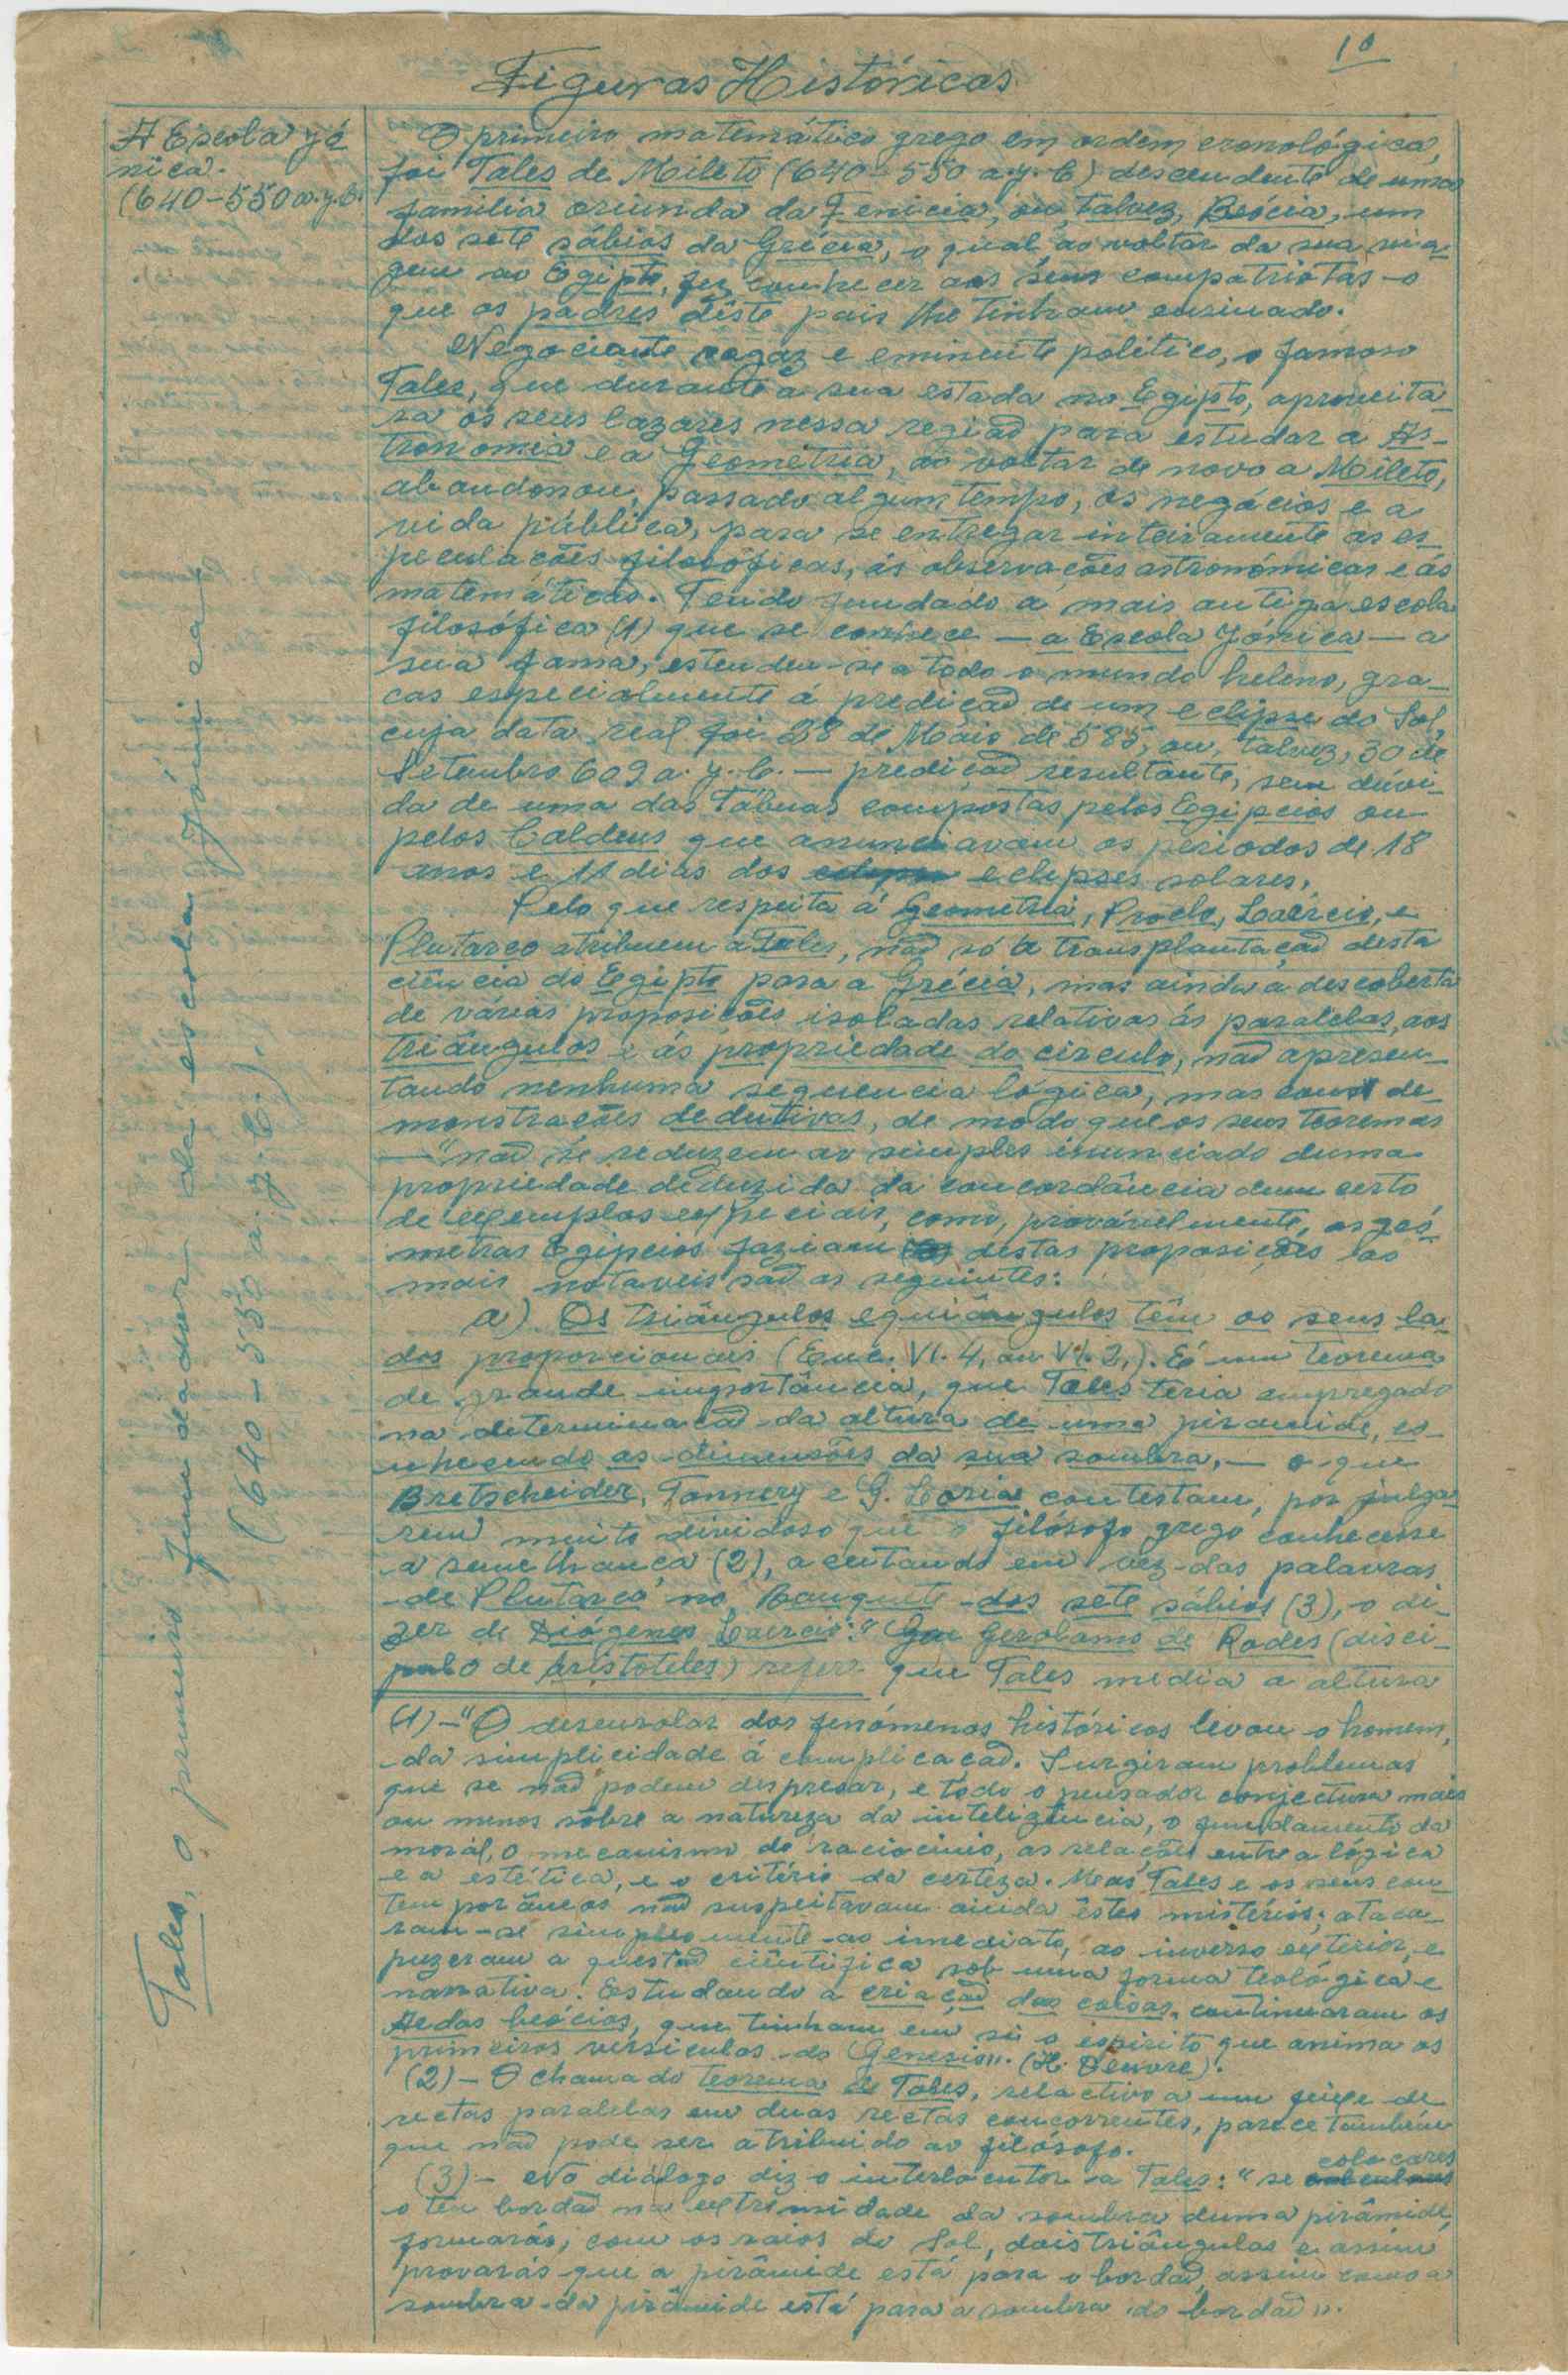 10
Figuras Históricas
A Escola Jó
nica.
(640-550 a.J.C.
Tales, o primeiro fundador da escola Jónica
(640-550 a.J.C.).
O primeiro matemático grego em ordem cronológica,
foi Tales de Mileto (640-550 a.J.C) descendente de uma
familia oriunda da Fenicia, ou, talvez, Beócia, um
dos sete sábios da Grécia, o qual ao voltar da sua via
gem ao Egipto, fez conhecer aos seus compatriotas o
que os padres dêste pais lhe tinham ensinado.
Negociante sagaz e eminente politico, o famoso
Tales, que durante a sua estada no Egipto, aproveita
ra os seus lazares nessa região para estudar a As-
tronomia e a Geometria, ao voltar de novo a Mileto,
abandonou, passado algum tempo, os negócios e a
vida pública, para se entregar inteiramente as es-
peculações filosóficas, ás observações astronómicas e ás
matemáticas. Tendo fundado a mais antiga escola
filosófica (1) que se conhece — a Escola Jónica — a
sua fama, estendeu-se a todo o mundo heleno, gra-
cas especialmente á predição de um eclipse do Sol,
cuja data real foi 28 de Maio de 585, ou, talvez, 30 de
Setembro 609 a.J.C. — predição resultante, sem dúvi-
da de uma das Tábuas compostas pelos Egipcios ou
pelos Caldeus que anunciavam os periodos de 18
anos e 11 dias dos eclipses solares.
Pelo que respeita á Geometria, Proclo, Laércio, e
Plutarco atribuem a Tales, não só a transplantação desta
ciência do Egipto para a Grécia, mas ainda a descoberta
de várias proposições isoladas relativas ás paralelas, aos
triângulos e ás propriedade do circulo, não apresen-
tando nenhuma sequencia lógica, mas com de-
monstrações dedutivas, de modo que os seus teoremas
— "não se reduzem ao simples enunciado duma
propriedade deduzida da concordância dum certo
de exemplos especiais, como, provávelmente, os geó-
metras Egipcios faziam destas proposições as
mais notaveis são as seguintes:
a) Os triângulos equiângulos têm os seus la-
dos proporcionais (Euc. VI. 4, ou VI. 2,). É um teorema
de grande importância, que Tales teria empregado
na determinação da altura de uma piramide, co-
nhecendo as dimensões da sua sombra, — o que
Bretscheider, Tannery e G. Loria contestam, por julga
rem muito dividoso que o filósofo grego conhecesse
a semelhança (2), aceitando em vez das palavras
de Plutarco no Banquete dos sete sábios (3), o di-
zer de Diógenes Laercio: "Que Gerolamo de Rodes (disci-
pulo de Aristoteles) refere que Tales media a altura
(1)-"O desenrolar dos fenómenos históricos levou o homem,
da simplicidade á complicação. Surgiram problemas
que se não podem despresar, e todo o pensador conjectura mais
ou menos sôbre a natureza da inteligência, o fundamento da
moral, o mecanismo do raciocinio, as relações entre a lógica
e a estética, e o critério da certeza. Mas Tales e os seus con-
temporâneos não suspeitavam ainda êstes mistérios; ataca-
ram-se simplesmente ao imediato, ao inverso exterior, e
puzeram a questão ciêntifica sob uma forma teológica e
narrativa. Estudando a criação das coisas, continuaram os
Aedos beócios, que tinham em si o espirito que anima os
primeiros versiculos do Genesis". (H. ).
(2)- O chamado teorema de Tales, relactivo a um feixe de
rectas paralelas em duas rectas concorrentes, parece também
que não pode ser atribuido ao filósofo.
(3)- No diálogo diz o interlocutor a Tales: "se colocares
o teu bordão na extremidade da sombra duma pirâmide,
formarás, com os raios do Sol, dois triângulos e assim
provarás que a pirâmide está para o bordão, assim como a
sombra da pirâmide está para a sombra do bordão".